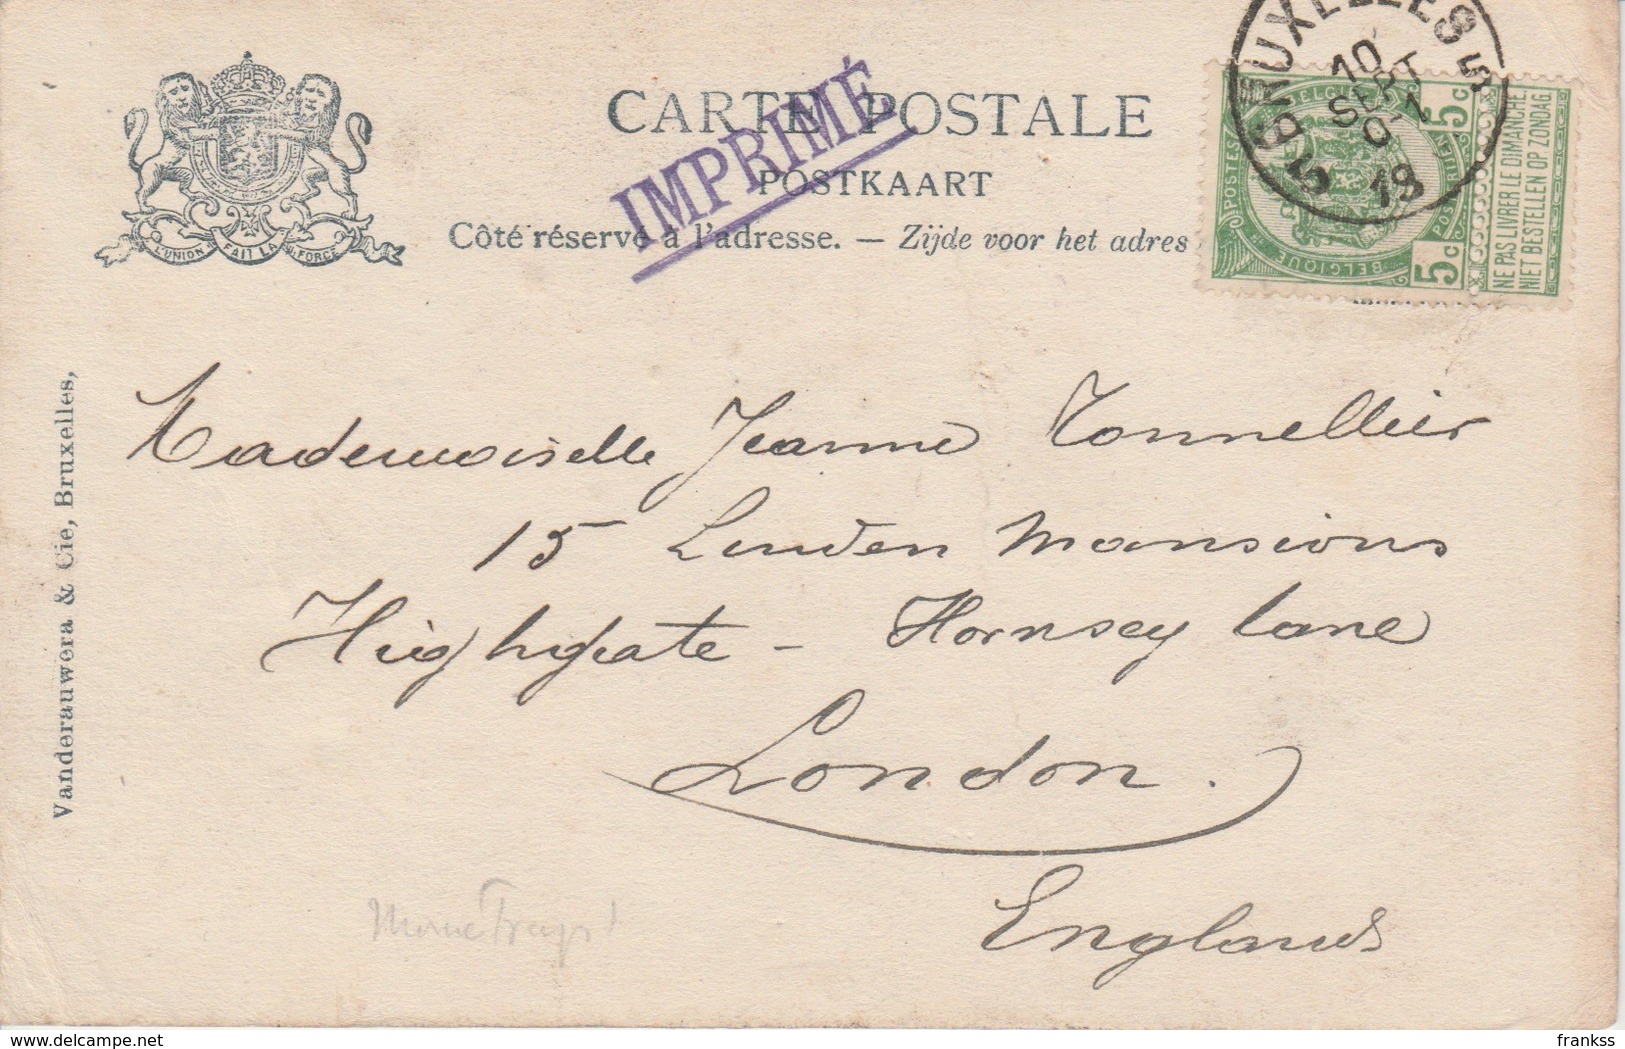 BRUXELLES 5
10
SEPT
18
5
CARTE POSTALE
IMPRIMÉ
POSTKAART
Côté réservé à l'adresse. — Zijde voor het adres
L'UNION FAIT LA FORCE
POSTES BELGIQUE
BELGIQUE
5c
5c
NE PAS LIVRER LE DIMANCHE
NIET BESTELLEN OP ZONDAG
Mademoiselle Jeanne Tonnellier
15 Linden Mansions
Highgate - Hornsey lane
London.
England
Vanderauwera & Cie, Bruxelles,
www.delcampe.net
frankss